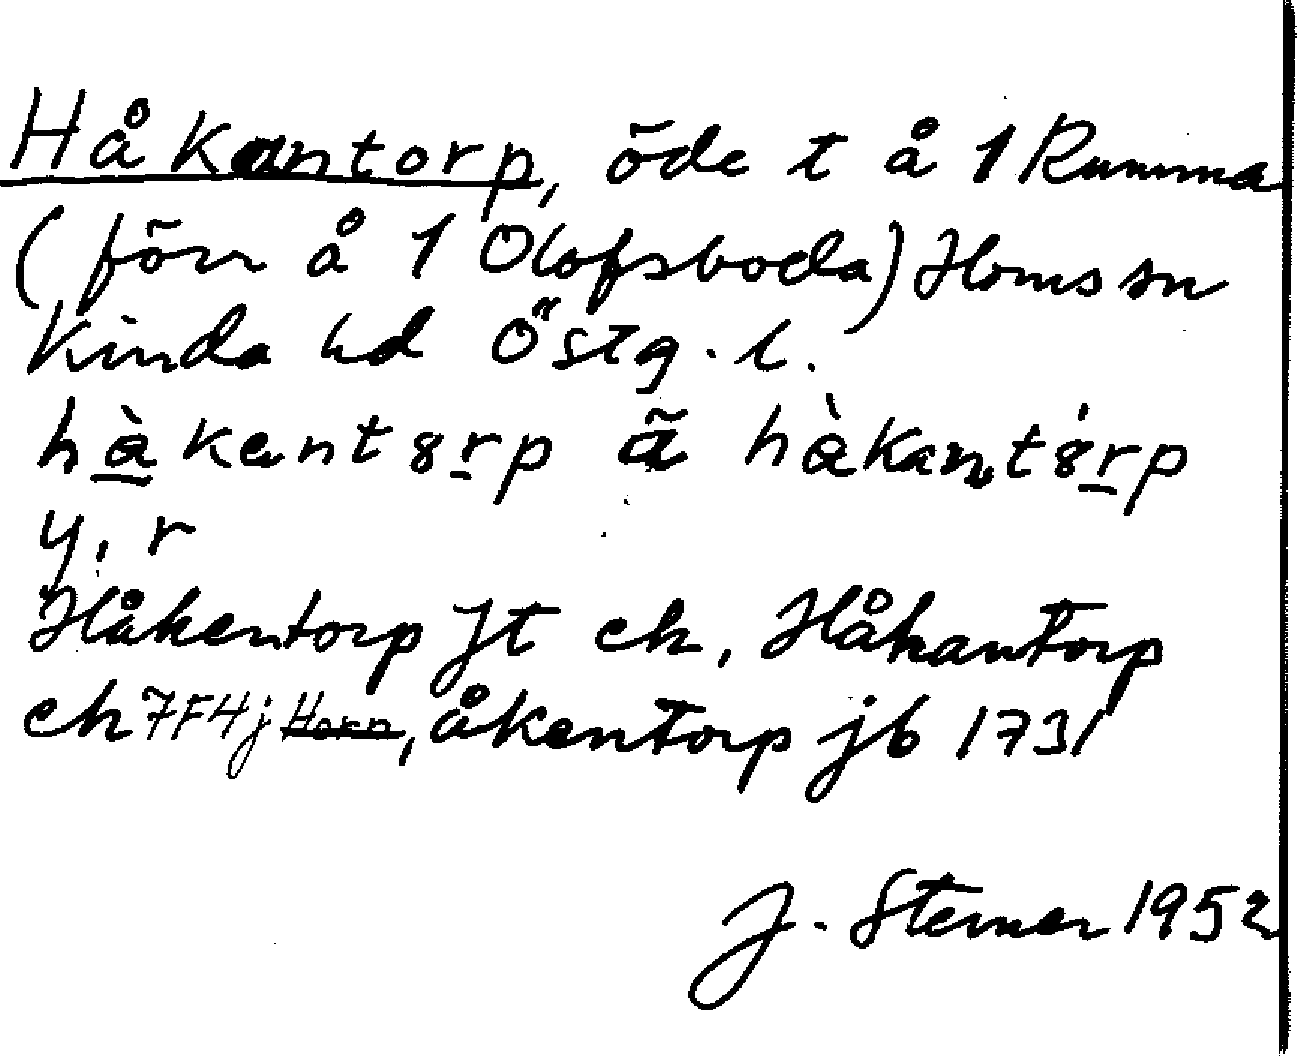 Håkantorp, öde t å 1 Rumma
(förr å 1 Olofsboda) Horns sn
Kinda hd Östg. l.
hàkent8rp ä hàkant8rp
y, r
Håkentorp Jt ek, Håkantorp
ek 7F4j Horn, åkentorp jb 1731
J. Sterner 1952